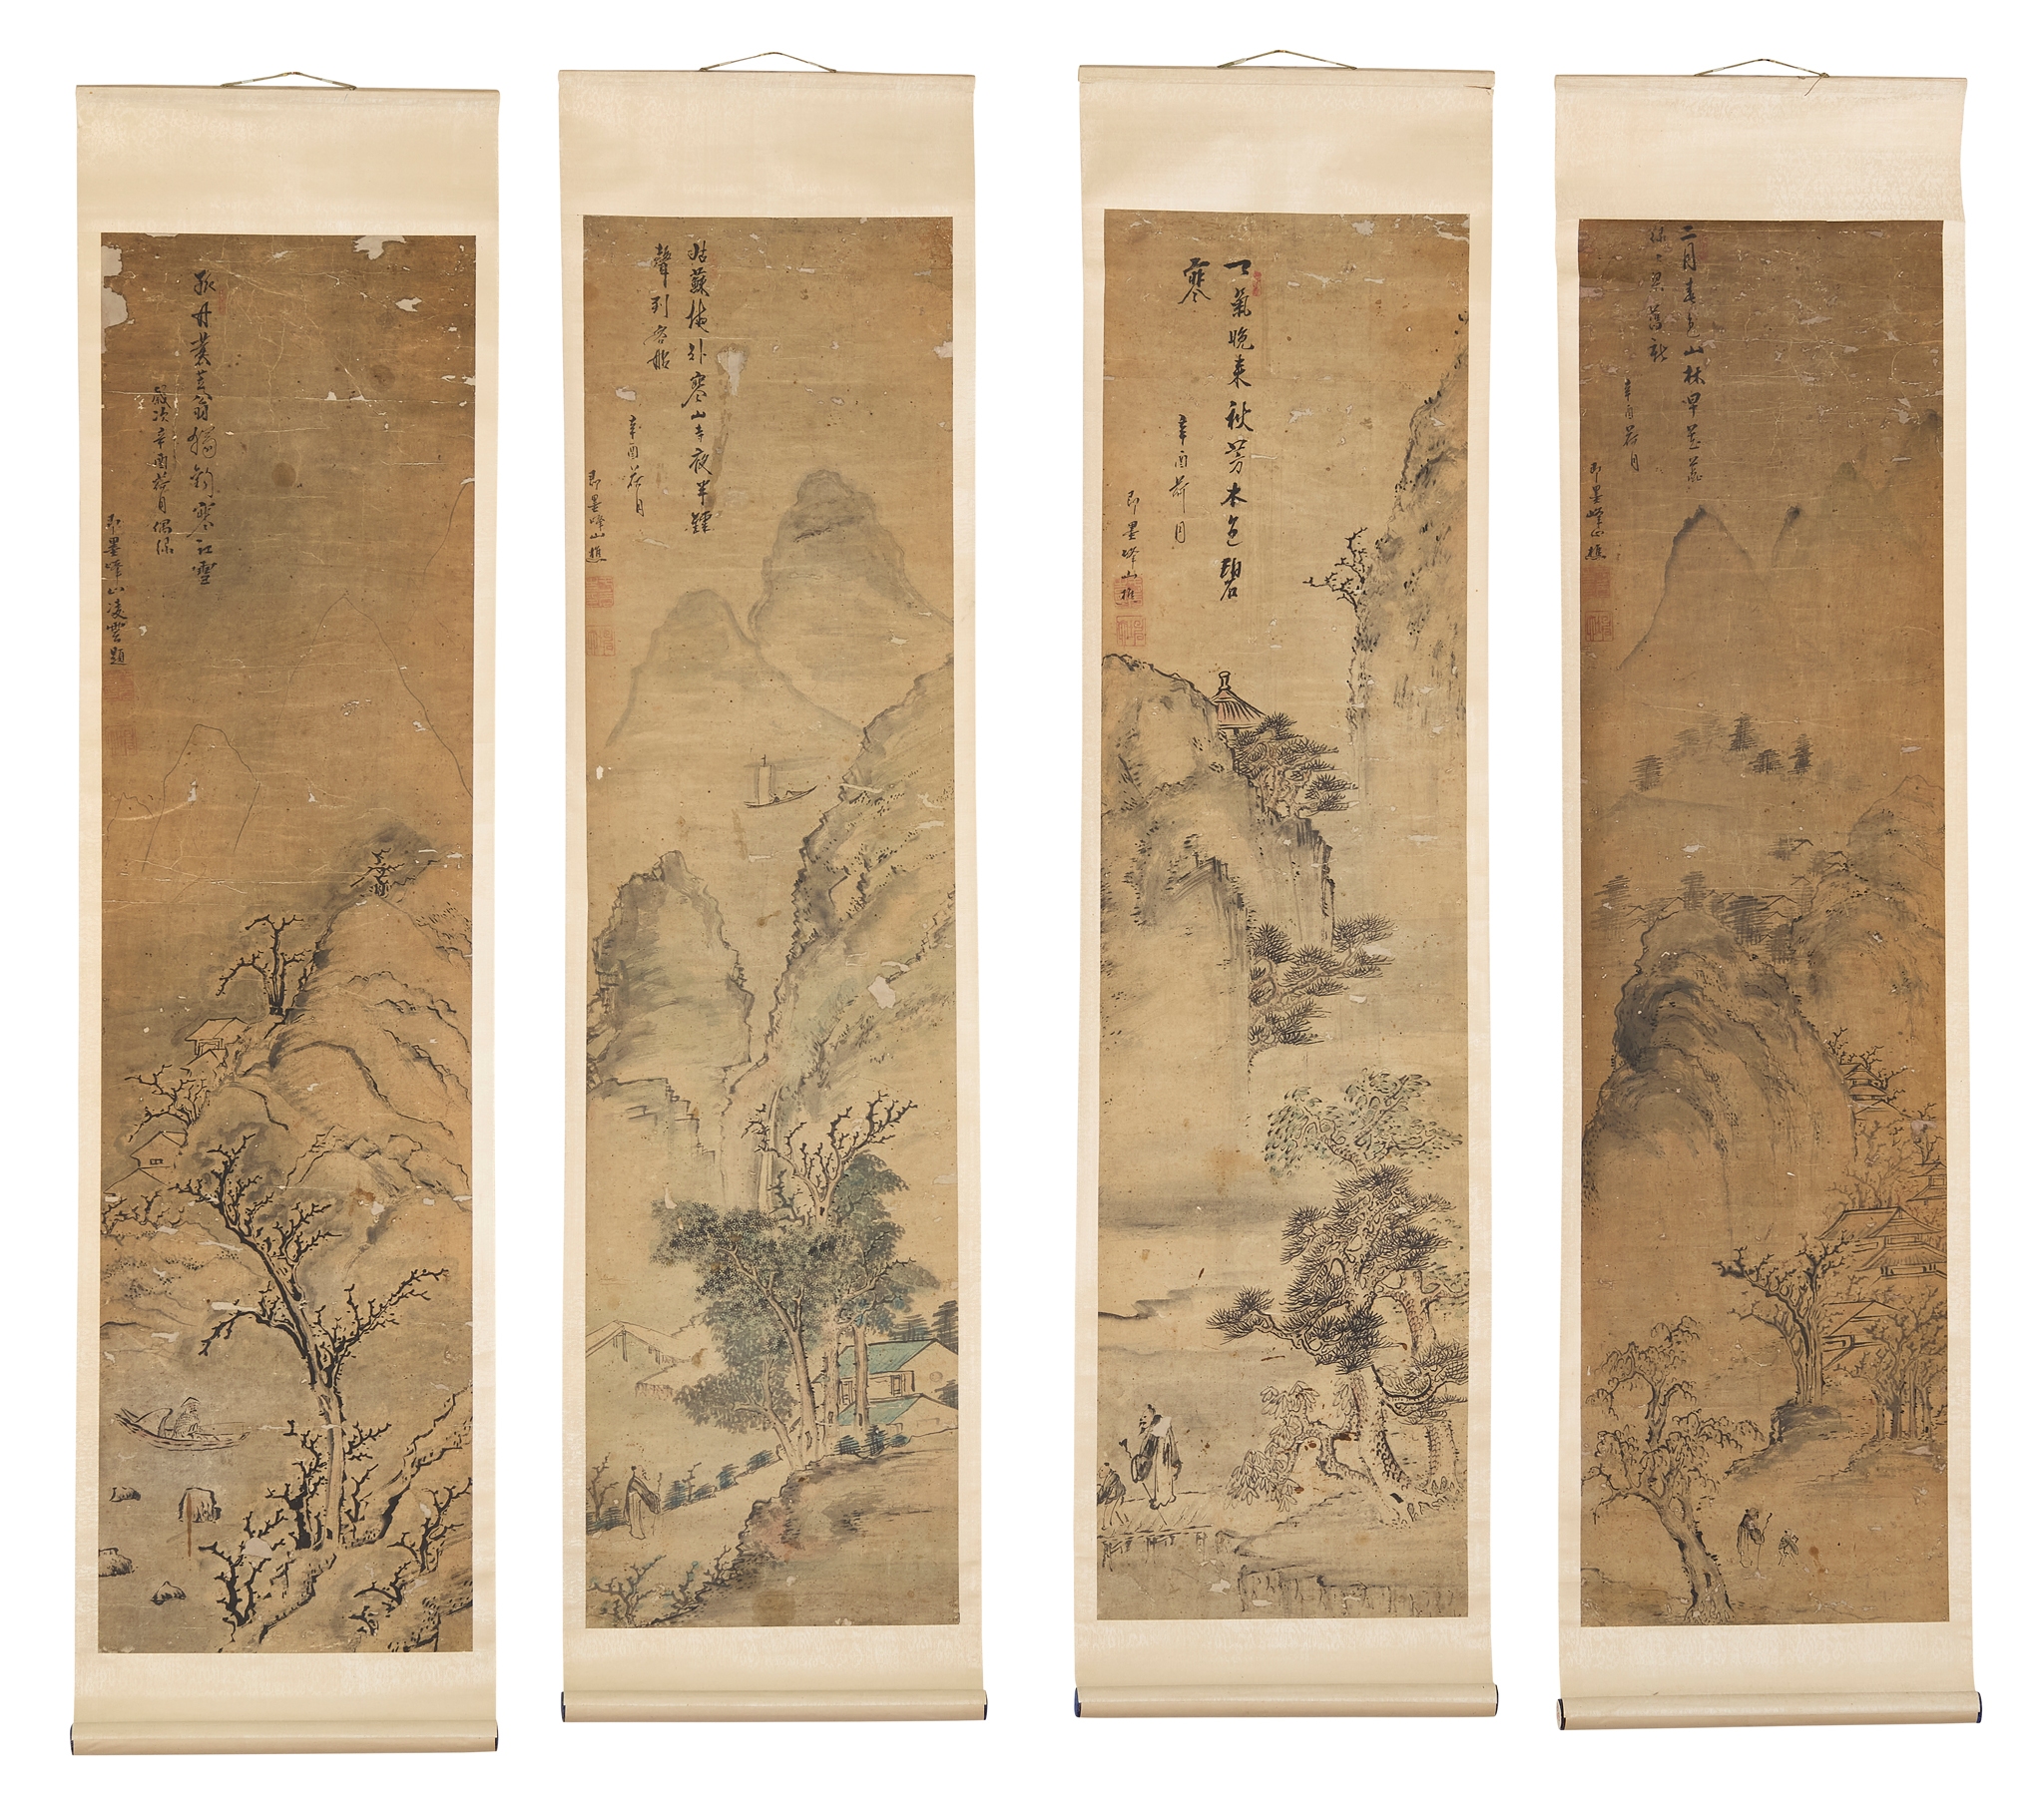 孤舟蓑笠翁獨釣寒江雪
歲次辛酉荷月偶
即墨峰山凌雲題
姑蘇城外寒山寺夜半鐘
聲到客船
辛酉荷月
即墨峰山樵
一氣晚來秋芳木色碧
寒
辛酉荷月
即墨峰山樵
二月春色山林早
舊
辛酉荷月
即墨峰山樵